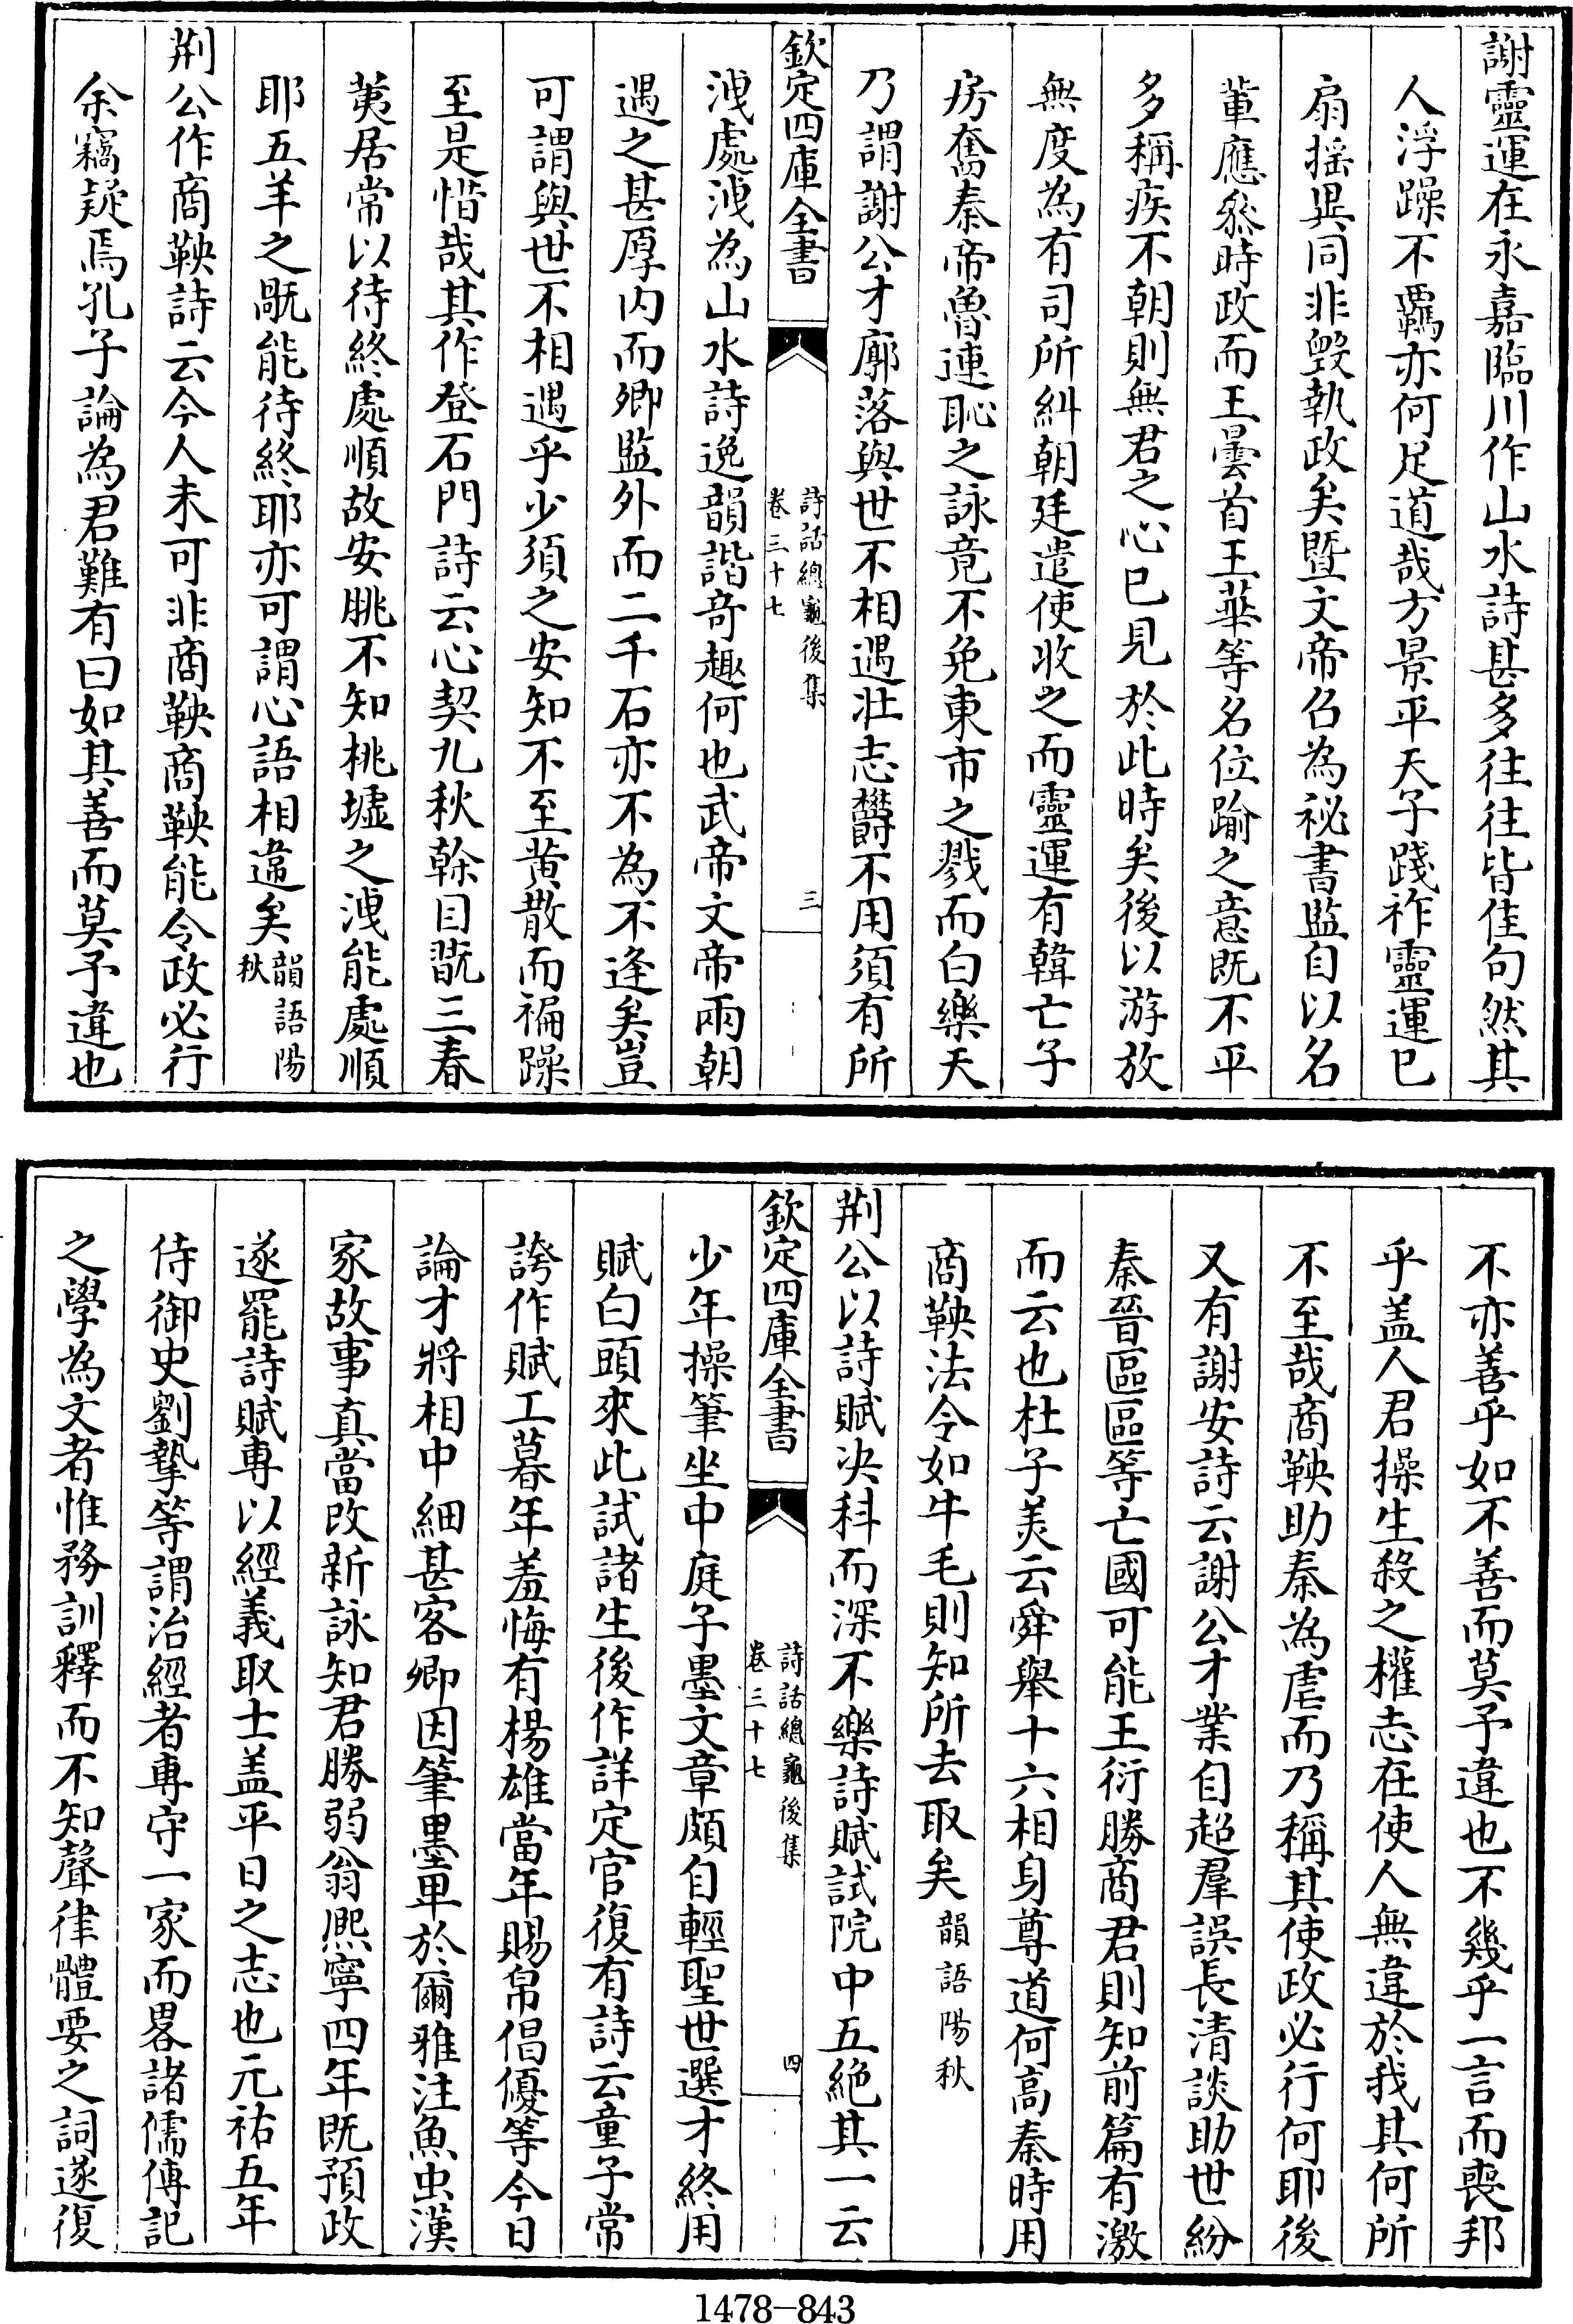 謝靈運在永嘉臨川作山水詩甚多往往皆佳句然其
人浮躁不羈亦何足道哉方景平天子踐祚靈運已
扇揺異同非毀執政矣暨文帝召為秘書監自以名
輩應叅時政而王曇首王華等名位踰之意既不平
多稱疾不朝則無君之心已見於此時矣後以游放
無度為有司所糾朝廷遣使收之而靈運有韓亡子
房奮秦帝魯連恥之詠竟不免東市之戮而白樂天
乃謂謝公才廓落與世不相遇壯志欝不用須有所
欽定四庫全書
詩話總龜後集
卷三十七
三
洩處洩為山水詩逸韻諧奇趣何也武帝文帝兩朝
遇之甚厚内而卿監外而二千石亦不為不逢矣豈
可謂與世不相遇乎少須之安知不至黄散而褊躁
至是惜哉其作登石門詩云心契九秋幹目翫三春
荑居常以待終處順故安眺不知桃墟之洩能處順
耶五羊之翫能待終耶亦可謂心語相違矣韻語陽
秋
荆公作商鞅詩云今人未可非商鞅商鞅能令政必行
余竊疑焉孔子論為君難有曰如其善而莫予違也
不亦善乎如不善而莫予違也不幾乎一言而喪邦
乎盖人君操生殺之權志在使人無違於我其何所
不至哉商鞅助秦為虐而乃稱其使政必行何耶後
又有謝安詩云謝公才業自超羣誤長清談助世紛
秦晉區區等亡國可能王衍勝商君則知前篇有激
而云也杜子美云舜舉十六相身尊道何高秦時用
商鞅法令如牛毛則知所去取矣韻語陽秋
荆公以詩賦决科而深不樂詩賦試院中五絶其一云
欽定四庫全書
詩話總龜後集
卷三十七
四
少年操筆坐中庭子墨文章頗自輕聖世選才終用
賦白頭來此試諸生後作詳定官復有詩云童子常
誇作賦工暮年羞悔有楊雄當年賜帛倡優等今日
論才將相中細甚客卿因筆墨卑於爾雅注魚虫漢
家故事真當改新詠知君勝弱翁熈寧四年既預政
遂罷詩賦専以經義取士盖平日之志也元祐五年
侍御史劉摯等謂治經者專守一家而畧諸儒傳記
之學為文者惟務訓釋而不知聲律體要之詞遂復
1478—843